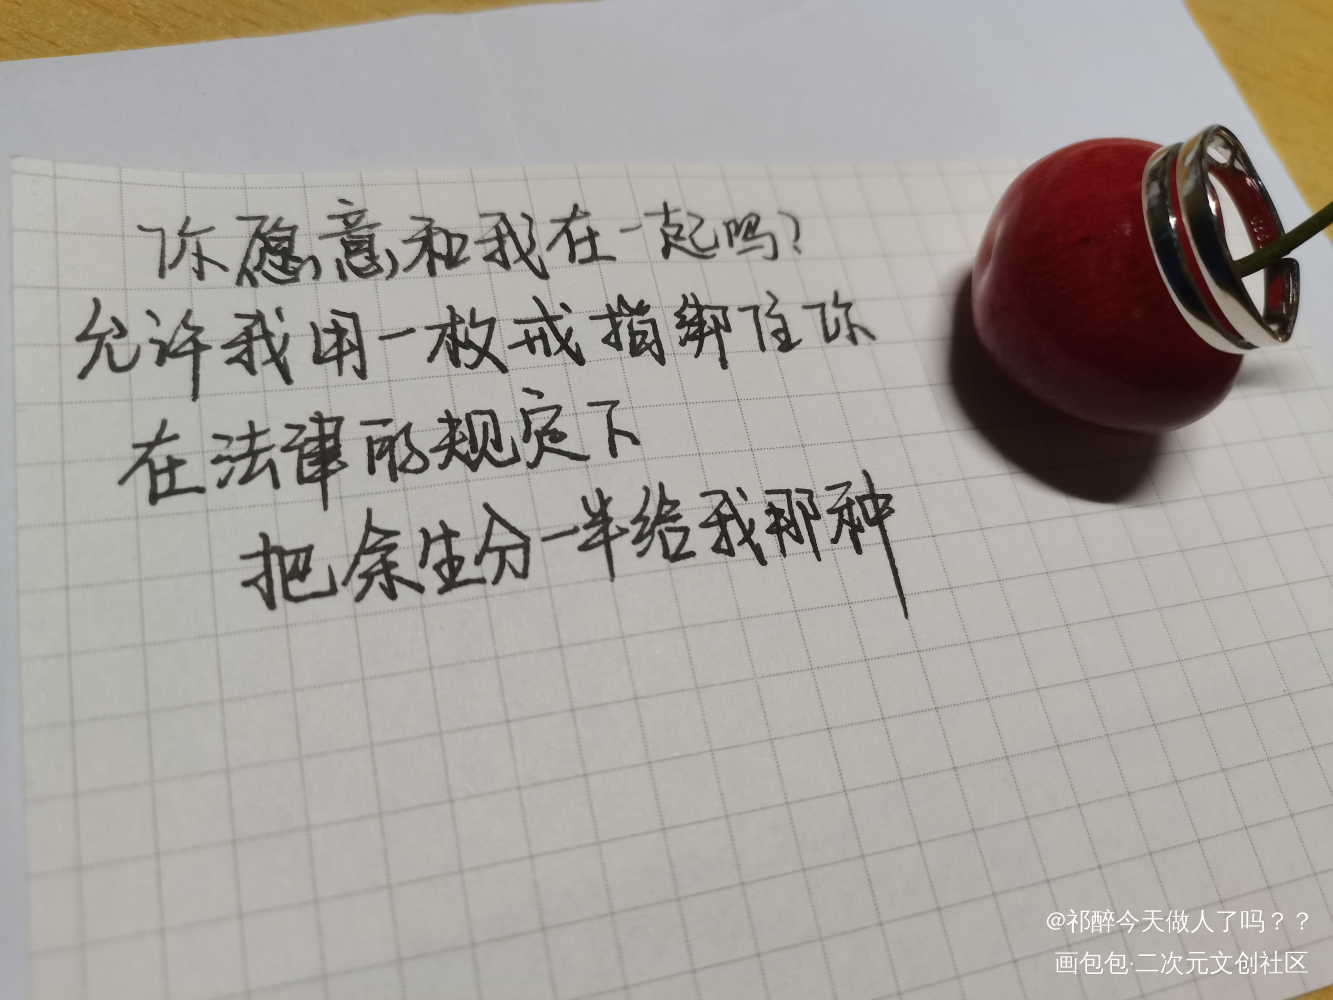 你愿意和我在一起吗?
允许我用一枚戒指绑住你
在法律所规定下
把余生分一半给我那种
@祁醉今天做人了吗？？
画包包·二次元文创社区